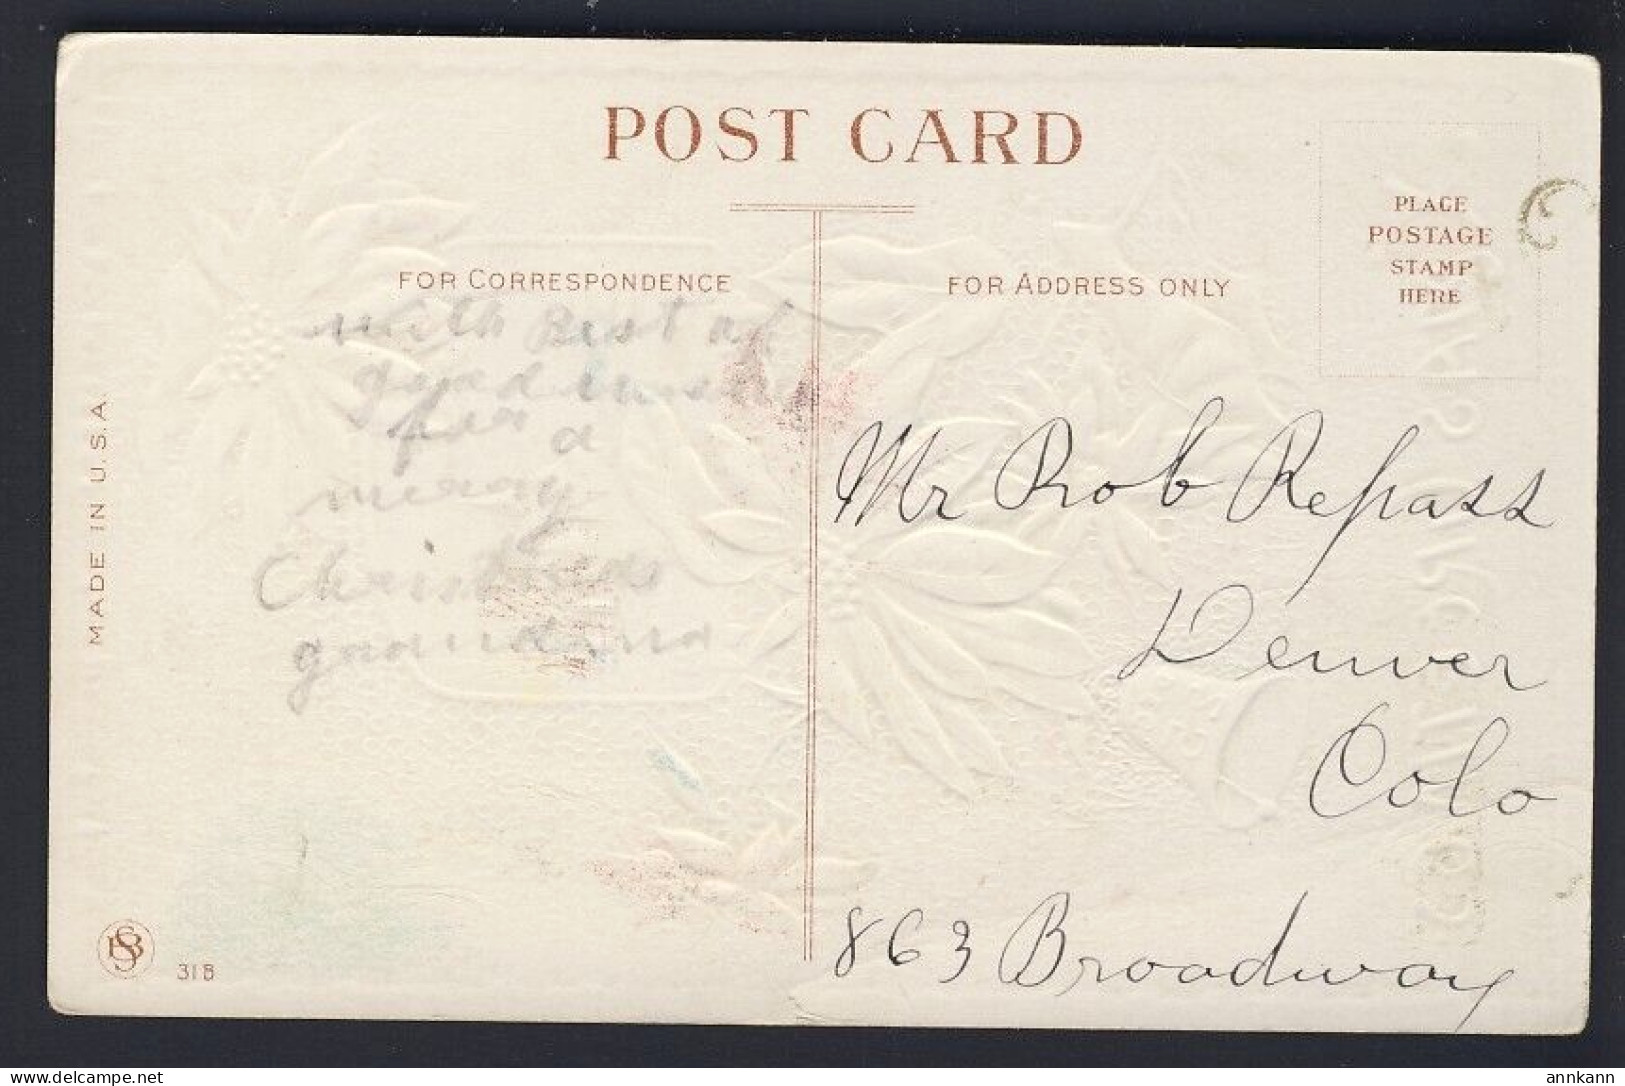 POST CARD
FOR CORRESPONDENCE
FOR ADDRESS ONLY
PLACE
POSTAGE
STAMP
HERE
with Best of
good
for a
merry
Christmas
Mr Rob Repass
Denver
Colo
863 Broadway
MADE IN U.S.A.
SB
318
annkann